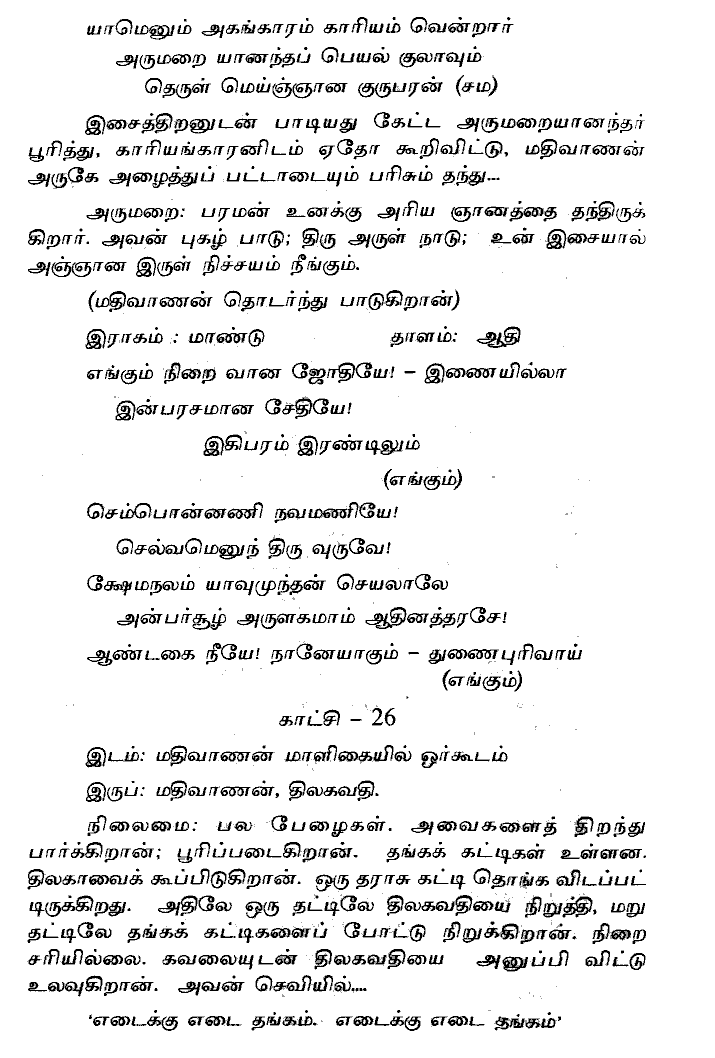 யாமெனும் அகங்காரம் காரியம் வென்றார்
அருமறை யானந்தப் பெயல் குலாவும்
தெருள் மெய்ஞ்ஞான குருபரன் (சம)
இசைத்திறனுடன் பாடியது கேட்ட அருமறையானந்தர்
பூரித்து, காரியங்காரனிடம் ஏதோ கூறிவிட்டு, மதிவாணன்
அருகே அழைத்துப் பட்டாடையும் பரிசும் தந்து...
அருமறை: பரமன் உனக்கு அரிய ஞானத்தை தந்திருக்
கிறார். அவன் புகழ் பாடு; திரு அருள் நாடு; உன் இசையால்
அஞ்ஞான இருள் நிச்சயம் நீங்கும்.
(மதிவாணன் தொடர்ந்து பாடுகிறான்)
இராகம் : மாண்டு தாளம்: ஆதி
எங்கும் நிறை வான ஜோதியே! – இணையில்லா
இன்பரசமான சேதியே!
இகிபரம் இரண்டிலும்
(எங்கும்)
செம்பொன்னணி நவமணியே!
செல்வமெனுந் திரு வுருவே!
க்ஷேமநலம் யாவுமுந்தன் செயலாலே
அன்பர்சூழ் அருளகமாம் ஆதினத்தரசே!
ஆண்டகை நீயே! நானேயாகும் – துணைபுரிவாய்
(எங்கும்)
காட்சி – 26
இடம்: மதிவாணன் மாளிகையில் ஓர்கூடம்
இருப்: மதிவாணன், திலகவதி.
நிலைமை: பல பேழைகள். அவைகளைத் திறந்து
பார்க்கிறான்; பூரிப்படைகிறான். தங்கக் கட்டிகள் உள்ளன.
திலகாவைக் கூப்பிடுகிறான். ஒரு தராசு கட்டி தொங்க விடப்பட்
டிருக்கிறது. அதிலே ஒரு தட்டிலே திலகவதியை நிறுத்தி, மறு
தட்டிலே தங்கக் கட்டிகளைப் போட்டு நிறுக்கிறான். நிறை
சரியில்லை. கவலையுடன் திலகவதியை அனுப்பி விட்டு
உலவுகிறான். அவன் செவியில்....
'எடைக்கு எடை தங்கம். எடைக்கு எடை தங்கம்'